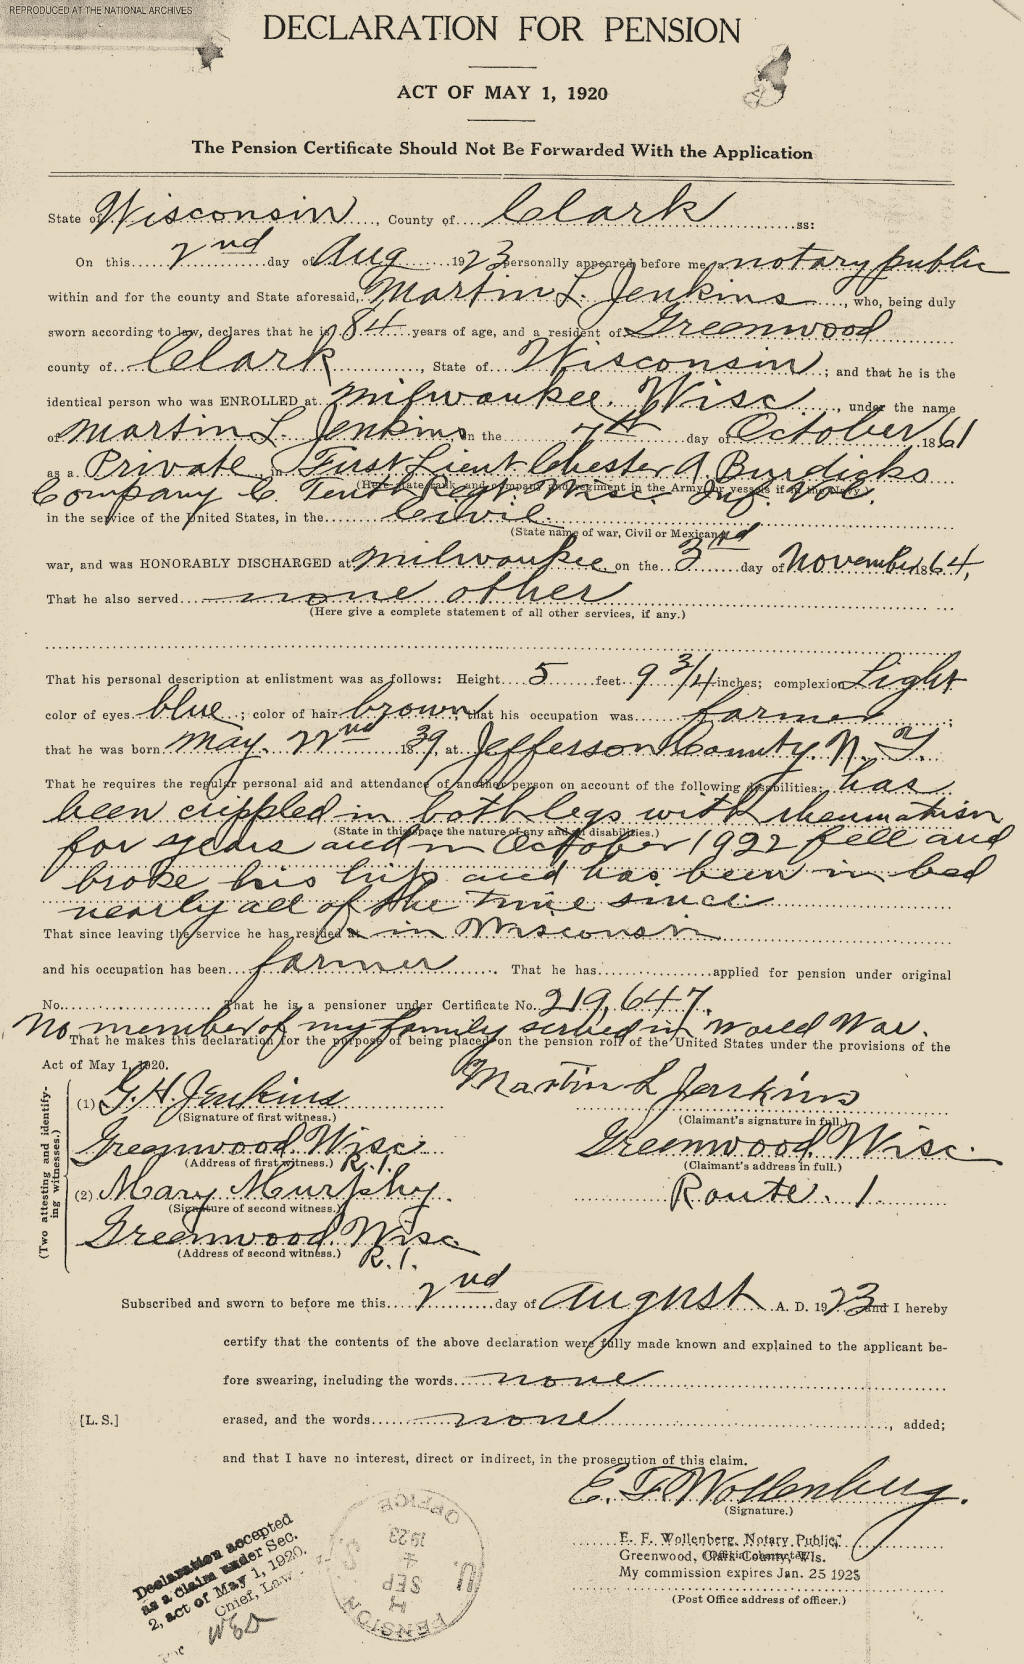 REPRODUCED AT THE NATIONAL ARCHIVES
DECLARATION FOR PENSION
ACT OF MAY 1, 1920
The Pension Certificate Should Not Be Forwarded With the Application
State of Wisconsin, County of Clark ss:
On this 2nd day of Aug 1923 personally appeared before me, a notary public
within and for the county and State aforesaid, Martin L. Jenkins, who, being duly
sworn according to law, declares that he is 84 years of age, and a resident of Greenwood
county of Clark, State of Wisconsin; and that he is the
identical person who was ENROLLED at milwaukee. Wisc, under the name
of Martin L. Jenkins in the 7th day of October 1861
as a Private in First Lieut Chester A. Burdicks
(Here state rank, and company and regiment in the Army, or vessels if in the Navy.)
Company C. Tenth Regt. Wisc. Inf. Vol.
in the service of the United States, in the Civil
(State name of war, Civil or Mexican.)
war, and was HONORABLY DISCHARGED at milwaukee. on the 3rd day of November 1864,
That he also served none other
(Here give a complete statement of all other services, if any.)
That his personal description at enlistment was as follows: Height 5 feet 9 3/4 inches; complexion Light
color of eyes blue; color of hair brown, that his occupation was farmer;
that he was born may. 22nd 1839, at Jefferson County. N. Y.
That he requires the regular personal aid and attendance of another person on account of the following disabilities: has
been crippled in both legs with rheumatism
(State in this space the nature of any and all disabilities.)
for years and in October 1922 fell and
broke his hip and has been in bed
nearly all of the time since
That since leaving the service he has resided at in Wisconsin
and his occupation has been farmer. That he has applied for pension under original
No. That he is a pensioner under Certificate No. 219,647.
No member of my family served in World War.
That he makes this declaration for the purpose of being placed on the pension roll of the United States under the provisions of the
Act of May 1, 1920.
(Two attesting and identifying witnesses.)
(1) G. H. Jenkins
(Signature of first witness.)
Greenwood. Wisc.
(Address of first witness.) R. 1.
(2) Mary Murphy.
(Signature of second witness.)
Greenwood. Wisc
(Address of second witness.) R. 1.
Martin L Jenkins
(Claimant's signature in full.)
Greenwood. Wisc.
(Claimant's address in full.)
Route. 1.
Subscribed and sworn to before me this 2nd day of August A. D. 1923 and I hereby
certify that the contents of the above declaration were fully made known and explained to the applicant be-
fore swearing, including the words none
[L. S.] erased, and the words none, added;
and that I have no interest, direct or indirect, in the prosecution of this claim.
E. F. Wollenberg.
(Signature.)
E. F. Wollenberg, Notary Public,
Greenwood, Clark County, Wis.
(Official character.)
My commission expires Jan. 25 1925
(Post Office address of officer.)
Declaration accepted
as a Claim under Sec.
2, act of May 1, 1920.
Chief, Law
U. S. PENSION OFFICE
SEP 4 1923